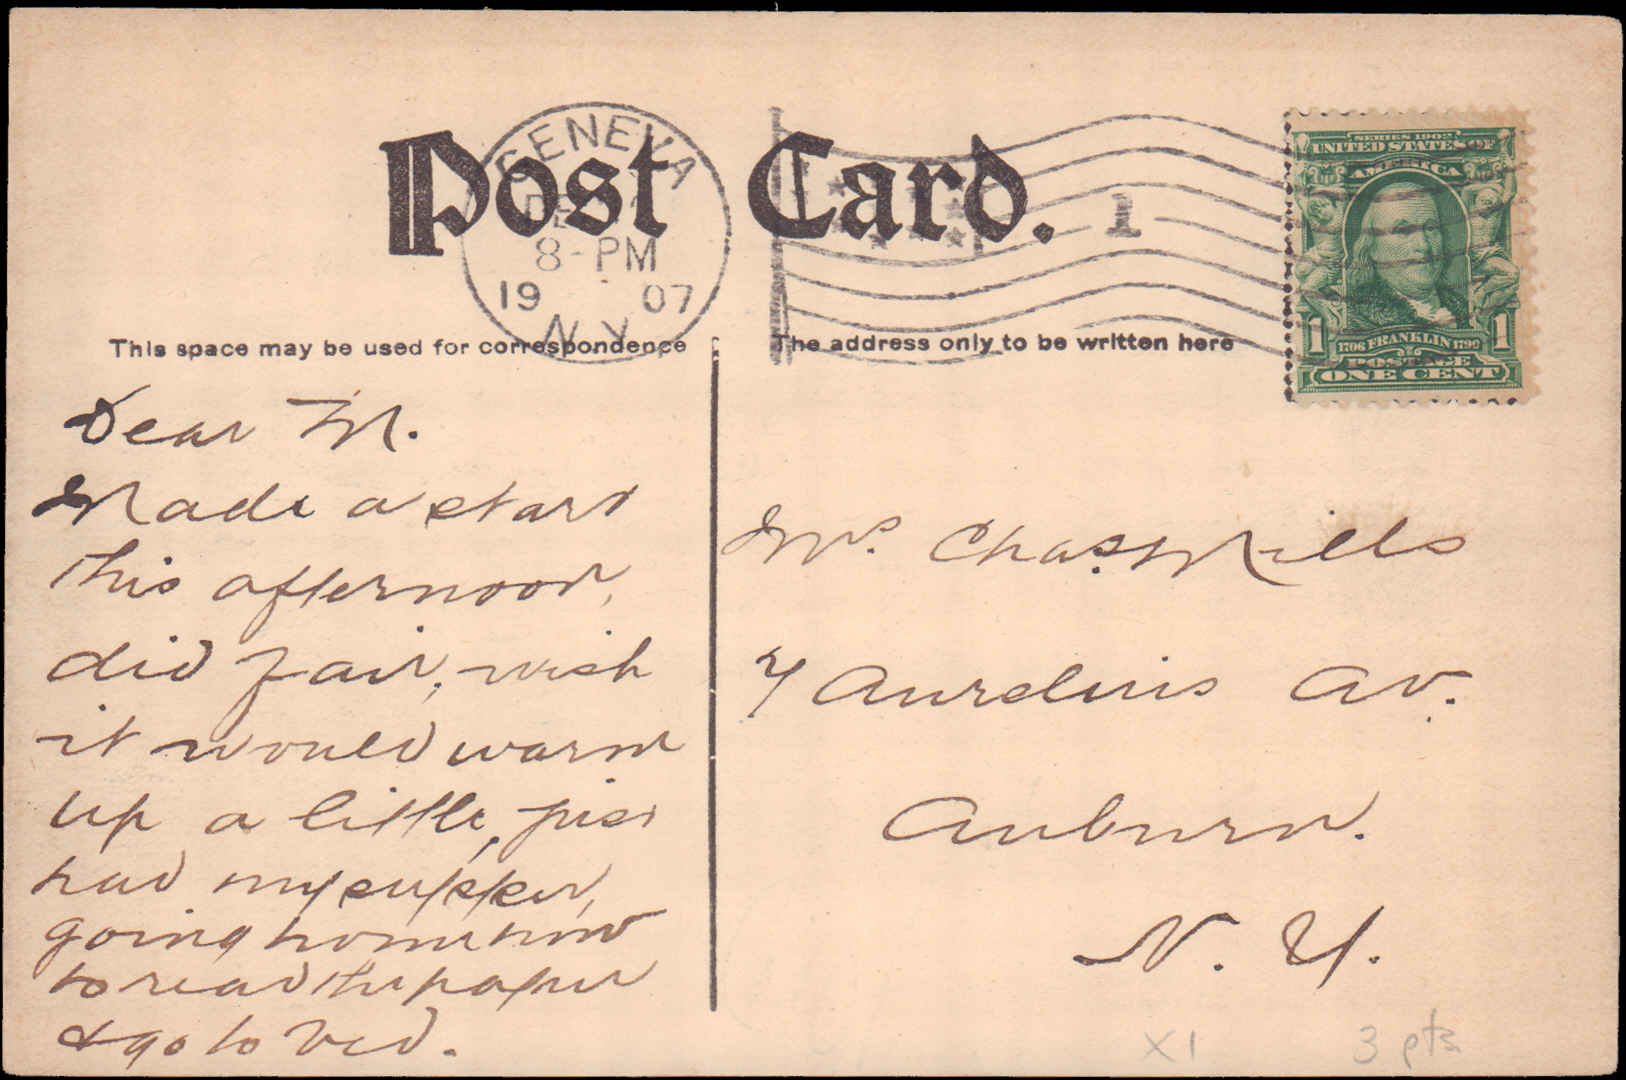 Post Card.
GENEVA
DE
8-PM
19 07
N.Y.
1
SERIES 1902
UNITED STATES OF
AMERICA
1 1706 FRANKLIN 1790 1
POSTAGE
ONE CENT
This space may be used for correspondence
The address only to be written here
Dear M.
Made a start
this afternoon,
did fair, wish
it would warm
up a little, just
had my supper,
going home now
to read the paper
& go to bed.
Mrs. Chas. Mills
7 Aurelius Av.
Auburn.
N. Y.
X1
3 pts